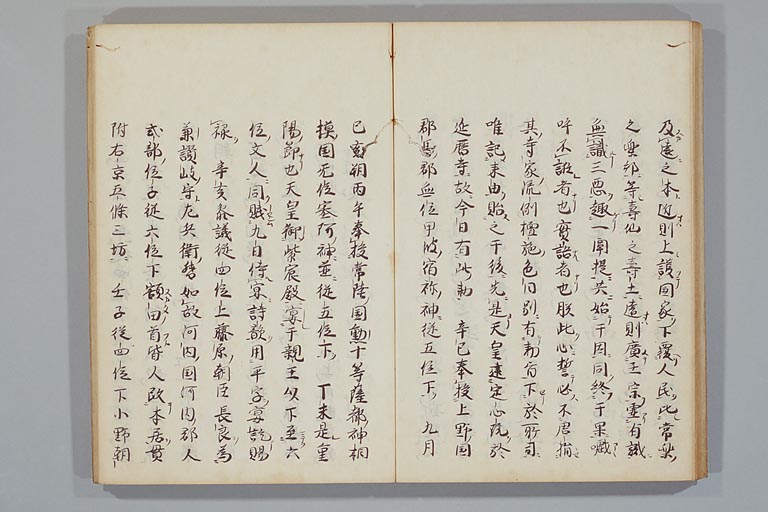 及遠之本近則上護国家下覆人民此常楽
之奥邦等壽仙之壽土遠則廣主宗霊有識
無識三悪趣一闡提共始于因同終于果噫
吁不誑者也實語者也朕此心誓必不唐捐
其寺家流例檀施色目別有勅旨下於所司
唯記来由貽之于後先是天皇建定心院於
延暦寺故今日有此勅 辛巳奉授上野国
郡馬郡無位甲波宿祢神従五位下 九月
己亥朔丙午奉授常陸国勲十等薩都神相
摸国无位寒河神並従五位下 丁未是重
陽節也天皇御紫宸殿宴于親王以下至六
位文人同賦九日侍宴詩歌用平字宴訖賜
禄 辛亥参議従四位上藤原朝臣長良為
兼讃岐守左兵衛督如故河内国河内郡人
式部位子従六位下額田首皆人改本居貫
附右京五條三坊 壬子従四位下小野朝